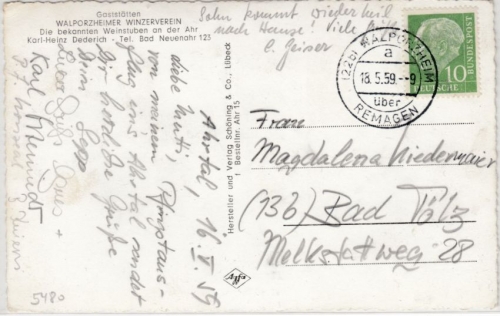 Gaststätten
WALPORZHEIMER WINZERVEREIN
Die bekannten Weinstuben an der Ahr
Karl-Heinz Dederich - Tel. Bad Neuenahr 123
Sohn kommt wieder heil
nach Hause! Viele
C. Geiser
(22b) WALPORZHEIM
a
18.5.59.--9
über
REMAGEN
10
DEUTSCHE BUNDESPOST
Ahrtal, 16. V. 59
Liebe Mutti,
von meinem Pfingstaus-
flug ins Ahrtal sendet
Dir herzliche Grüße
Dein Sepp
Karl
Hersteller und Verlag Schöning & Co., Lübeck
Bestellnr. Ahr 15
Frau
Magdalena Niedermaier
(13b) Bad Tölz
Melkstattweg 28
5480